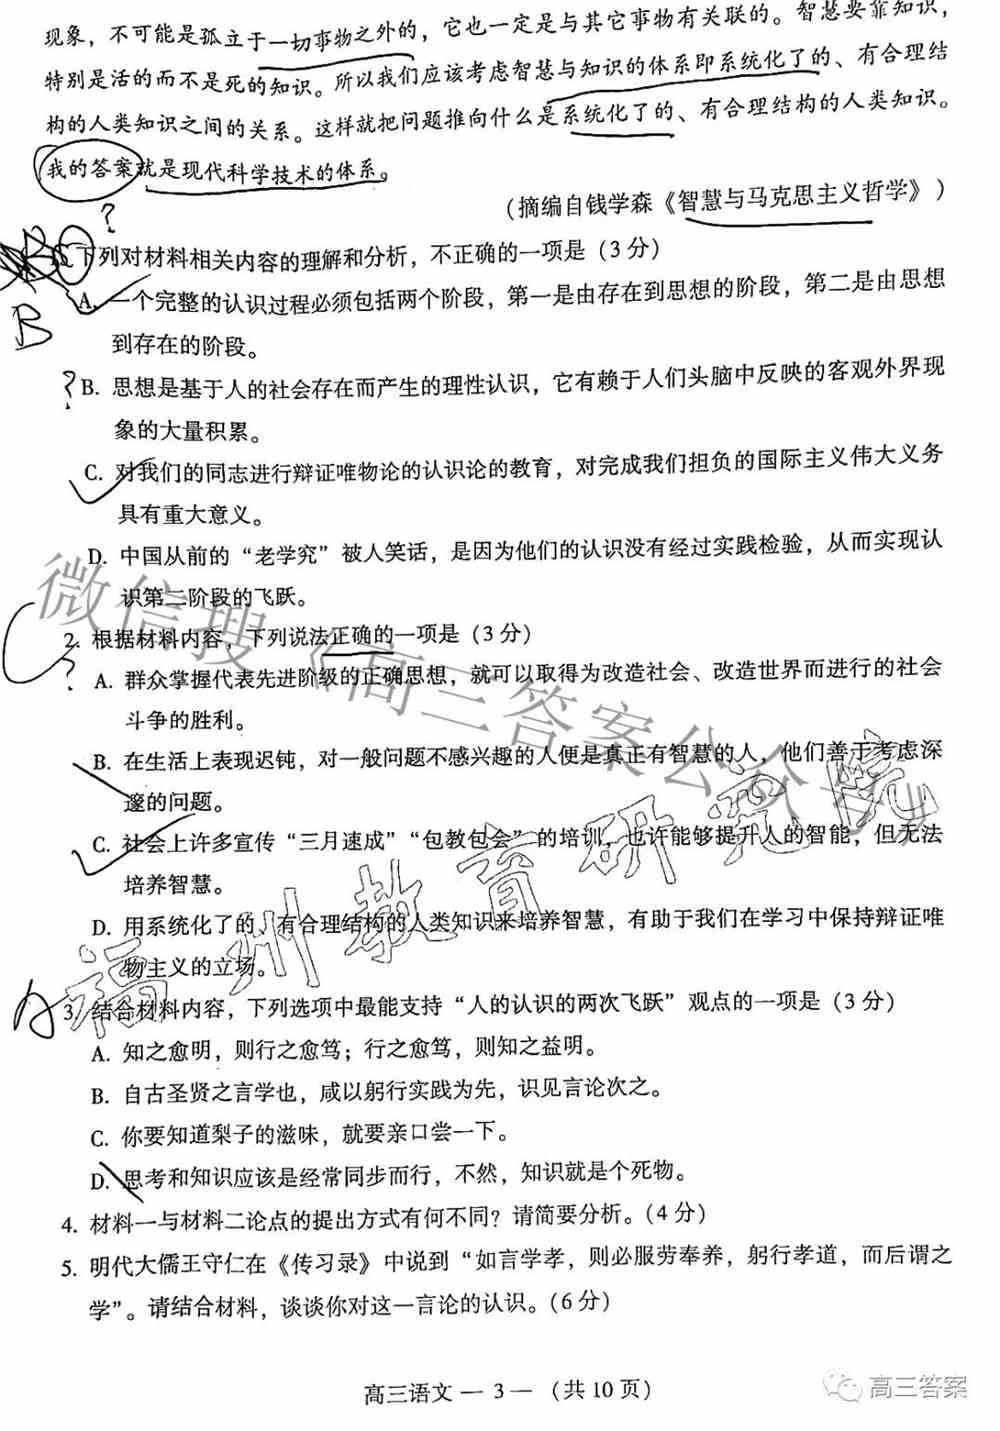 现象，不可能是孤立于一切事物之外的，它也一定是与其它事物有关联的。智慧要靠知识，
特别是活的而不是死的知识。所以我们应该考虑智慧与知识的体系即系统化了的、有合理结
构的人类知识之间的关系。这样就把问题推向什么是系统化了的、有合理结构的人类知识。
我的答案就是现代科学技术的体系。
（摘编自钱学森《智慧与马克思主义哲学》）
?
B
下列对材料相关内容的理解和分析，不正确的一项是（3分）
B
A. 一个完整的认识过程必须包括两个阶段，第一是由存在到思想的阶段，第二是由思想
到存在的阶段。
?
B. 思想是基于人的社会存在而产生的理性认识，它有赖于人们头脑中反映的客观外界现
象的大量积累。
C. 对我们的同志进行辩证唯物论的认识论的教育，对完成我们担负的国际主义伟大义务
具有重大意义。
D. 中国从前的“老学究”被人笑话，是因为他们的认识没有经过实践检验，从而实现认
识第二阶段的飞跃。
C
2. 根据材料内容，下列说法正确的一项是（3分）
?
A. 群众掌握代表先进阶级的正确思想，就可以取得为改造社会、改造世界而进行的社会
斗争的胜利。
B. 在生活上表现迟钝，对一般问题不感兴趣的人便是真正有智慧的人，他们善于考虑深
邃的问题。
C. 社会上许多宣传“三月速成”“包教包会”的培训，也许能够提升人的智能，但无法
培养智慧。
D. 用系统化了的、有合理结构的人类知识来培养智慧，有助于我们在学习中保持辩证唯
物主义的立场。
A
3. 结合材料内容，下列选项中最能支持“人的认识的两次飞跃”观点的一项是（3分）
A. 知之愈明，则行之愈笃；行之愈笃，则知之益明。
B. 自古圣贤之言学也，咸以躬行实践为先，识见言论次之。
C. 你要知道梨子的滋味，就要亲口尝一下。
D. 思考和知识应该是经常同步而行，不然，知识就是个死物。
4. 材料一与材料二论点的提出方式有何不同？请简要分析。（4分）
5. 明代大儒王守仁在《传习录》中说到“如言学孝，则必服劳奉养，躬行孝道，而后谓之
学”。请结合材料，谈谈你对这一言论的认识。（6分）
高三语文 — 3 —（共10页）
微信搜《高三答案公众号》
福州教育研究院
高三答案